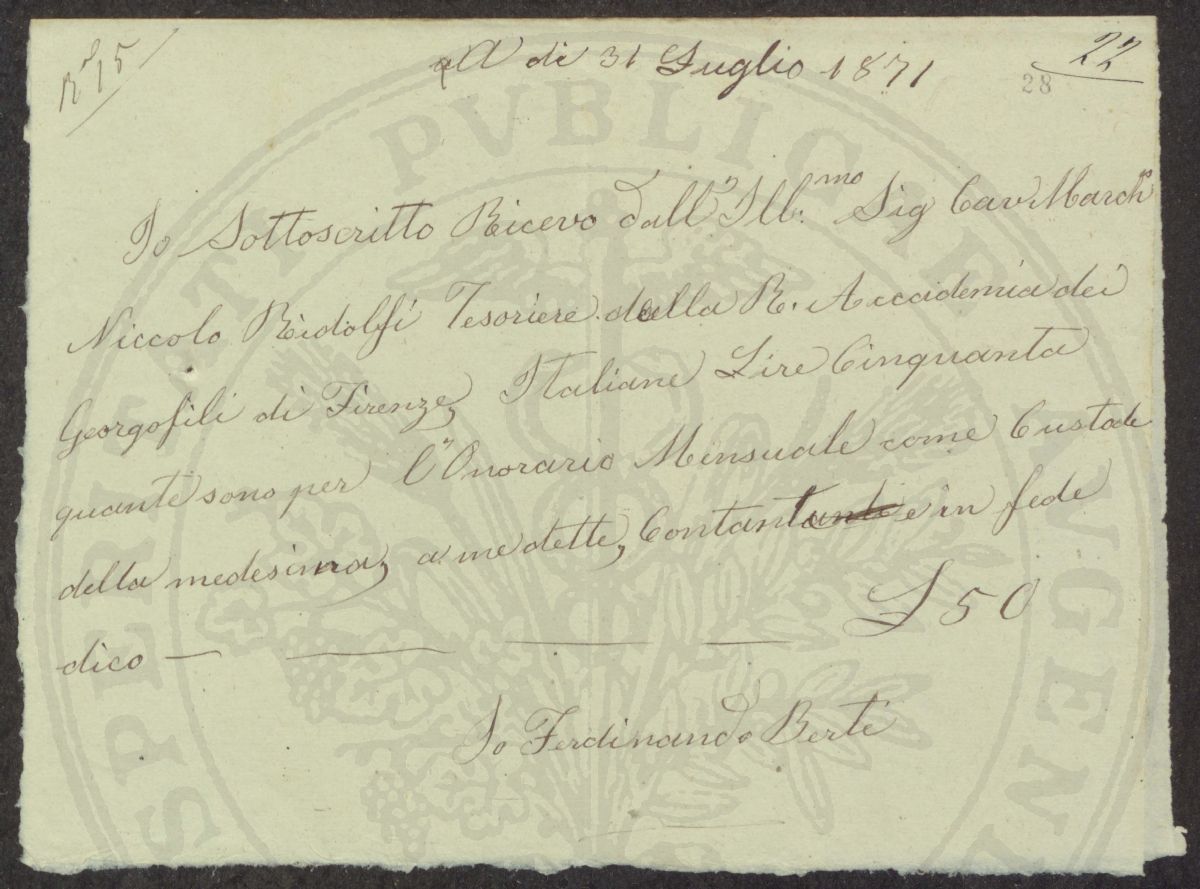 R.ta 15
22
28
A di 31 Luglio 1871
Io Sottoscritto Ricevo dall' Ill.mo Sig Cav March.
Niccolo Ridolfi Tesoriere della R. Accademia dei
Georgofili di Firenze, Italiane Lire Cinquanta
quante sono per l'Onorario Mensuale come Custode
della medesima, a me dette, Contanti e in fede
dico — — — — £ 50
Io Ferdinando Berti
PROSPERITATI PVBLICAE AVGENDAE